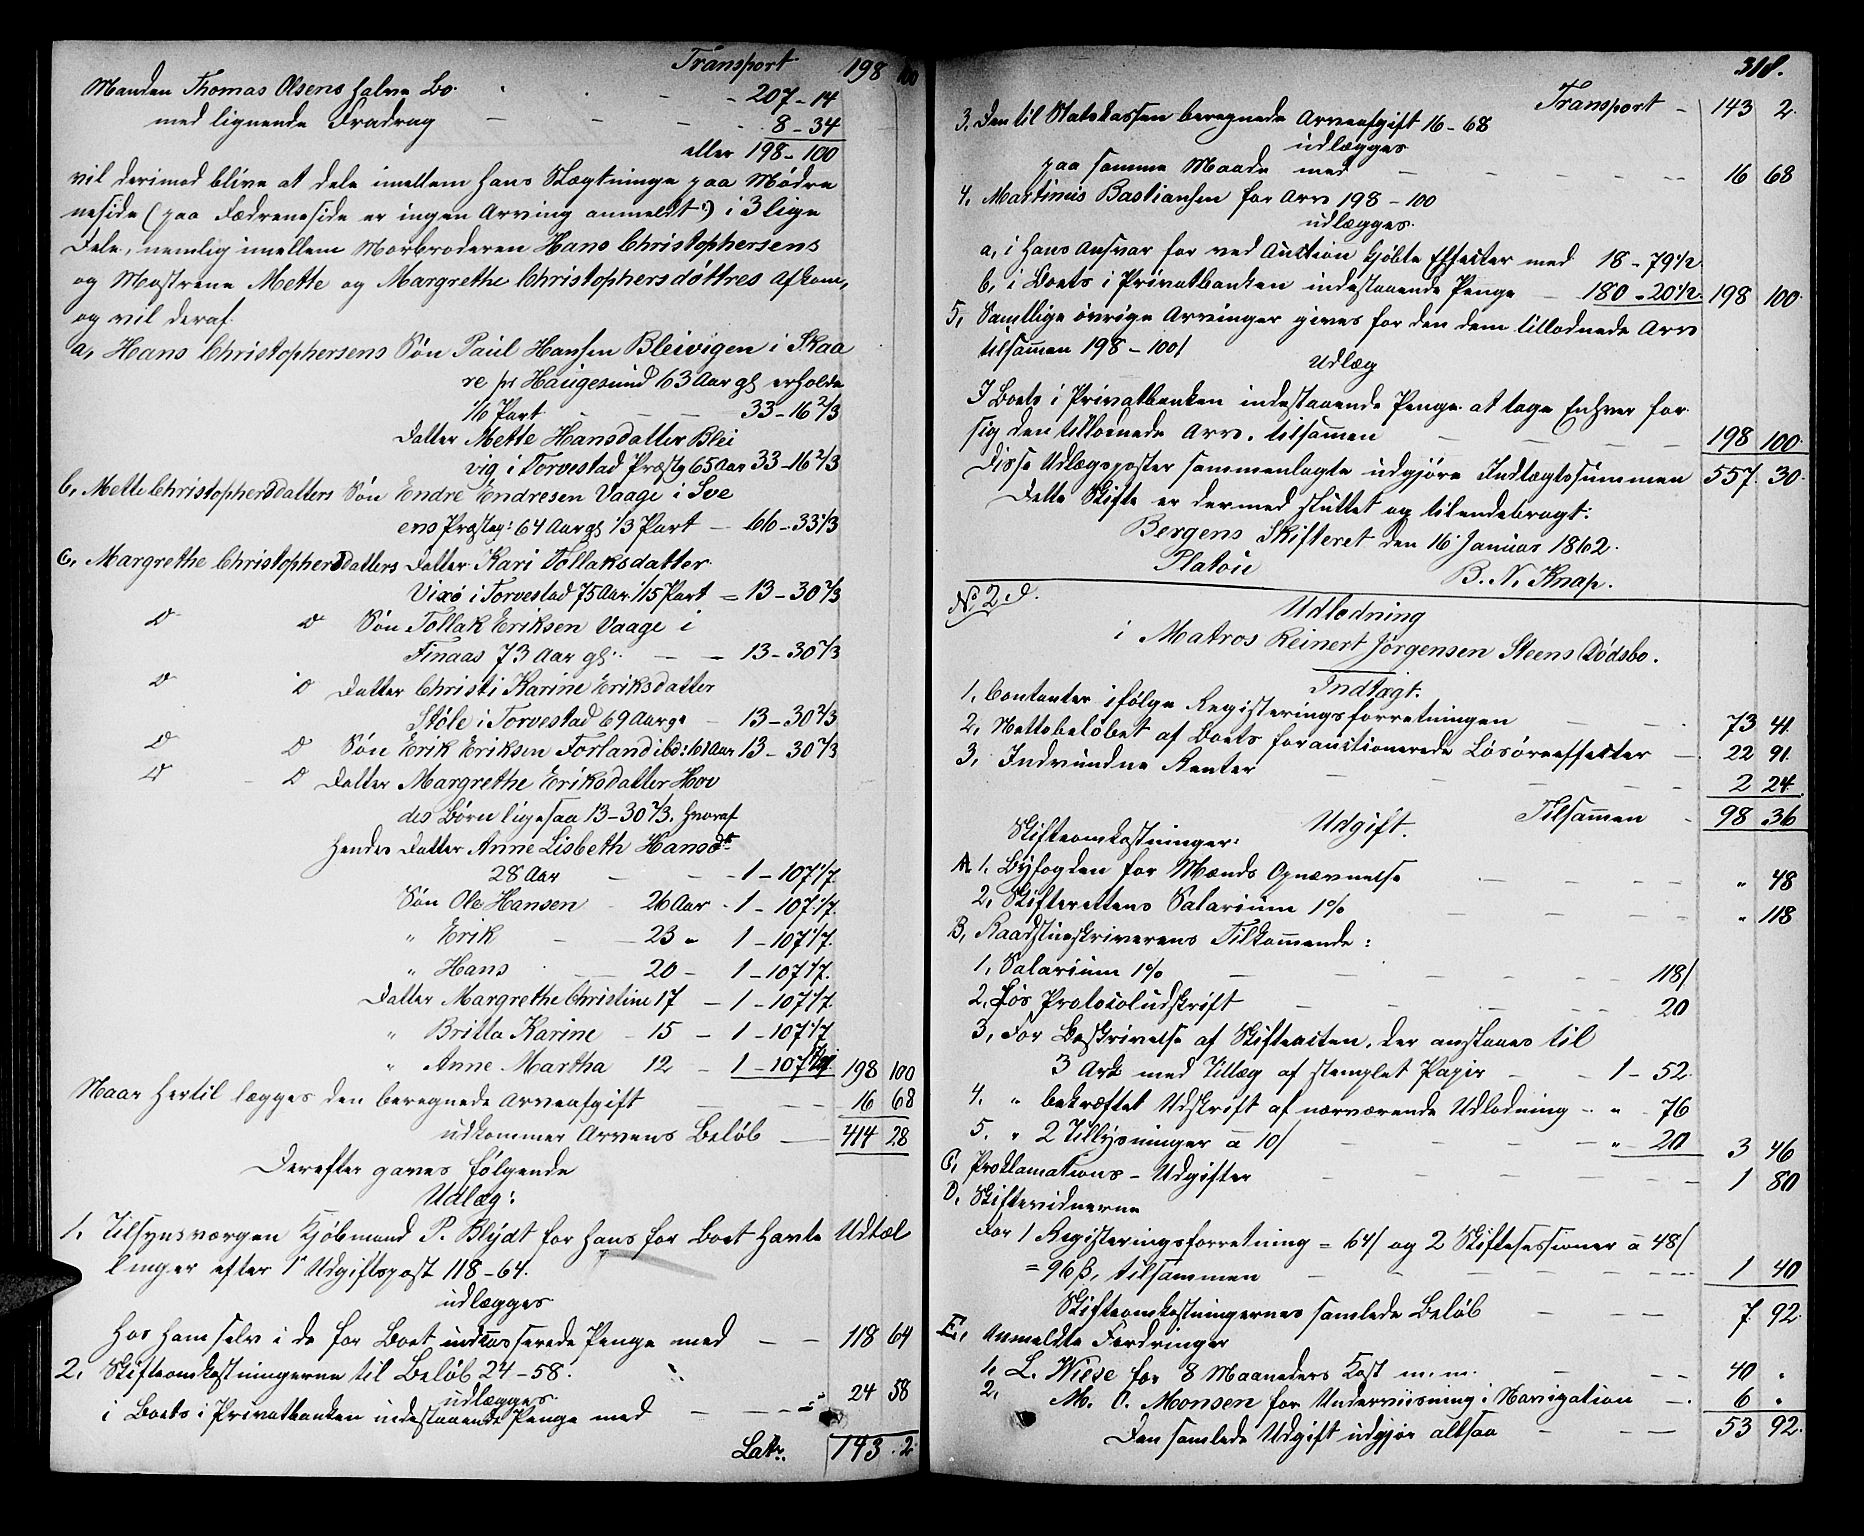 Transport 198 100
Manden Thomas Olsens halve Bo - 207-14
med lignende Fradrag - 8-34
eller 198-100
vil derimod blive at dele imellem hans Slægtninge paa Mødre
neside (paa Fædreneside er ingen Arving anmeldt) i 3 lige
Dele, nemlig imellem Morbroderen Hans Christophersens
og Mostrene Mette og Margrethe Christophersdøttres Afkom,
og vil deraf
a, Hans Christophersens Søn Paul Hansen Bleivigen i Skaa
re pr Haugesund 63 Aar gl erholde
1/6 Part 33-16 2/3
Datter Mette Hansdatter Blei
vig i Torvestad Præstg 65 Aar 33-16 2/3
b, Mette Christophersdatters Søn Endre Endresen Vaage i Sve
ens Præsteg: 64 Aar gl 1/3 Part - 66-33 1/3
c, Margrethe Christophersdatters Datter Kari Tollaksdatter
Vixø i Torvestad 75 Aar 1/15 Part = 13-30 2/3
D D Søn Tollak Eriksen Vaage i
Finaas 73 Aar gl. - 13-30 2/3
D D Datter Christi Karine Eriksdatter
Støle i Torvestad 69 Aar gl - 13-30 2/3
D D Søn Erik Eriksen Forland ibd: 61 Aar 13-30 2/3
D D Datter Margrethe Eriksdatter Hov
des Børn ligesaa 13-30 2/3, hvoraf
hendes Datter Anne Lisbeth Hansdtr
28 Aar - 1-107 1/7.
Søn Ole Hansen - 26 Aar - 1-107 1/7.
" Erik - 23 " 1-107 1/7.
" Hans - 20 - 1-107 1/7.
Datter Margrethe Christine 17 - 1-107 1/7.
" Britta Karine - 15 - 1-107 1/7
" Anne Martha 12 - 1-107 1/7 198 100
Naar hertil lægges den beregnede Arveafgift 16 68
udkommer Arvens Beløb 414 28
Derefter gaves følgende
Udlæg:
1. Tilsynsværgen Kjøbmand P. Blydt for hans for Boet havte Udtæl
linger efter 1e Udgiftspost 118-64.
udlægges
hos ham selv i de for Boet indkasserede Penge med - 118 64
2. Skifteomkostningerne til Beløb 24-58.
udlægges
i Boets i Privatbanken indestaaende Penge med - 24 58
Latr. 143. 2.
318.
Transport - 143 2.
3. Den til Statskassen beregnede Arveafgift 16-68
udlægges
paa samme Maade med - 16 68
4. Martinus Bastiansen for Arv 198-100
udlægges.
a, i hans Ansvar for ved Auction kjøbte Effecter med 18-79 1/2
b, i Boets i Privatbanken indestaaende Penge - 180-20 1/2. 198 100.
5, Samtlige øvrige Arvinger gives for den dem tillodnede Arv
tilsammen 198-100/
Udlæg
I Boets i Privatbanken indestaaende Penge at tage Enhver for
sig den tillodnede Arv, tilsammen - 198 100.
Disse Udlægsposter sammenlagte udgjøre Indtægtssummen 557. 30.
Dette Skifte er dermed sluttet og tilendebragt:
Bergens Skifteret den 16 Januar 1862.
Platou B. N. Knap.
No 2 d.
Udlodning
i Matros Reinert Jørgensen Steens Dødsbo.
Indtægt.
1. Contanter ifølge Registeringsforretningen - 73 41.
2. Nettobeløbet af Boets forauctionerede Løsøreeffecter - 22 91.
3, Indvundne Renter - 2 24.
Tilsammen - 98 36
Udgift.
Skifteomkostninger:
A 1. Byfogden for Mænds Opnævnelse - " 48
2. Skifterettens Salarium 1% - " 118
B, Raadstueskriverens Tilkommende:
1, Salarium 1% - 118/
2, for Protocoludskrift - 20
3, For Beskrivelse af Skifteacten, der anstaaes til
3 Ark med Tillæg af stemplet Papir - 1-52.
4. " bekræftet Udskrift af nærværende Udlodning - " 76
5. " 2 Tillysninger a 10/ - " 20 3 46
C, Proklamations-Udgifter - 1 80
D, Skiftevidnerne
For 1 Registeringsforretning = 64/ og 2 Skiftesessioner a 48/
= 96 ß, tilsammen - 1 40
Skifteomkostningernes samlede Beløb - 7 92.
E, Anmeldte Fordringer
1, L. Wiese for 8 Maaneders Kost m.m. - 40 "
2, M. O. Monsen for Underviisning i Navigation - 6 "
Den samlede Udgift udgjør altsaa - 53 92.